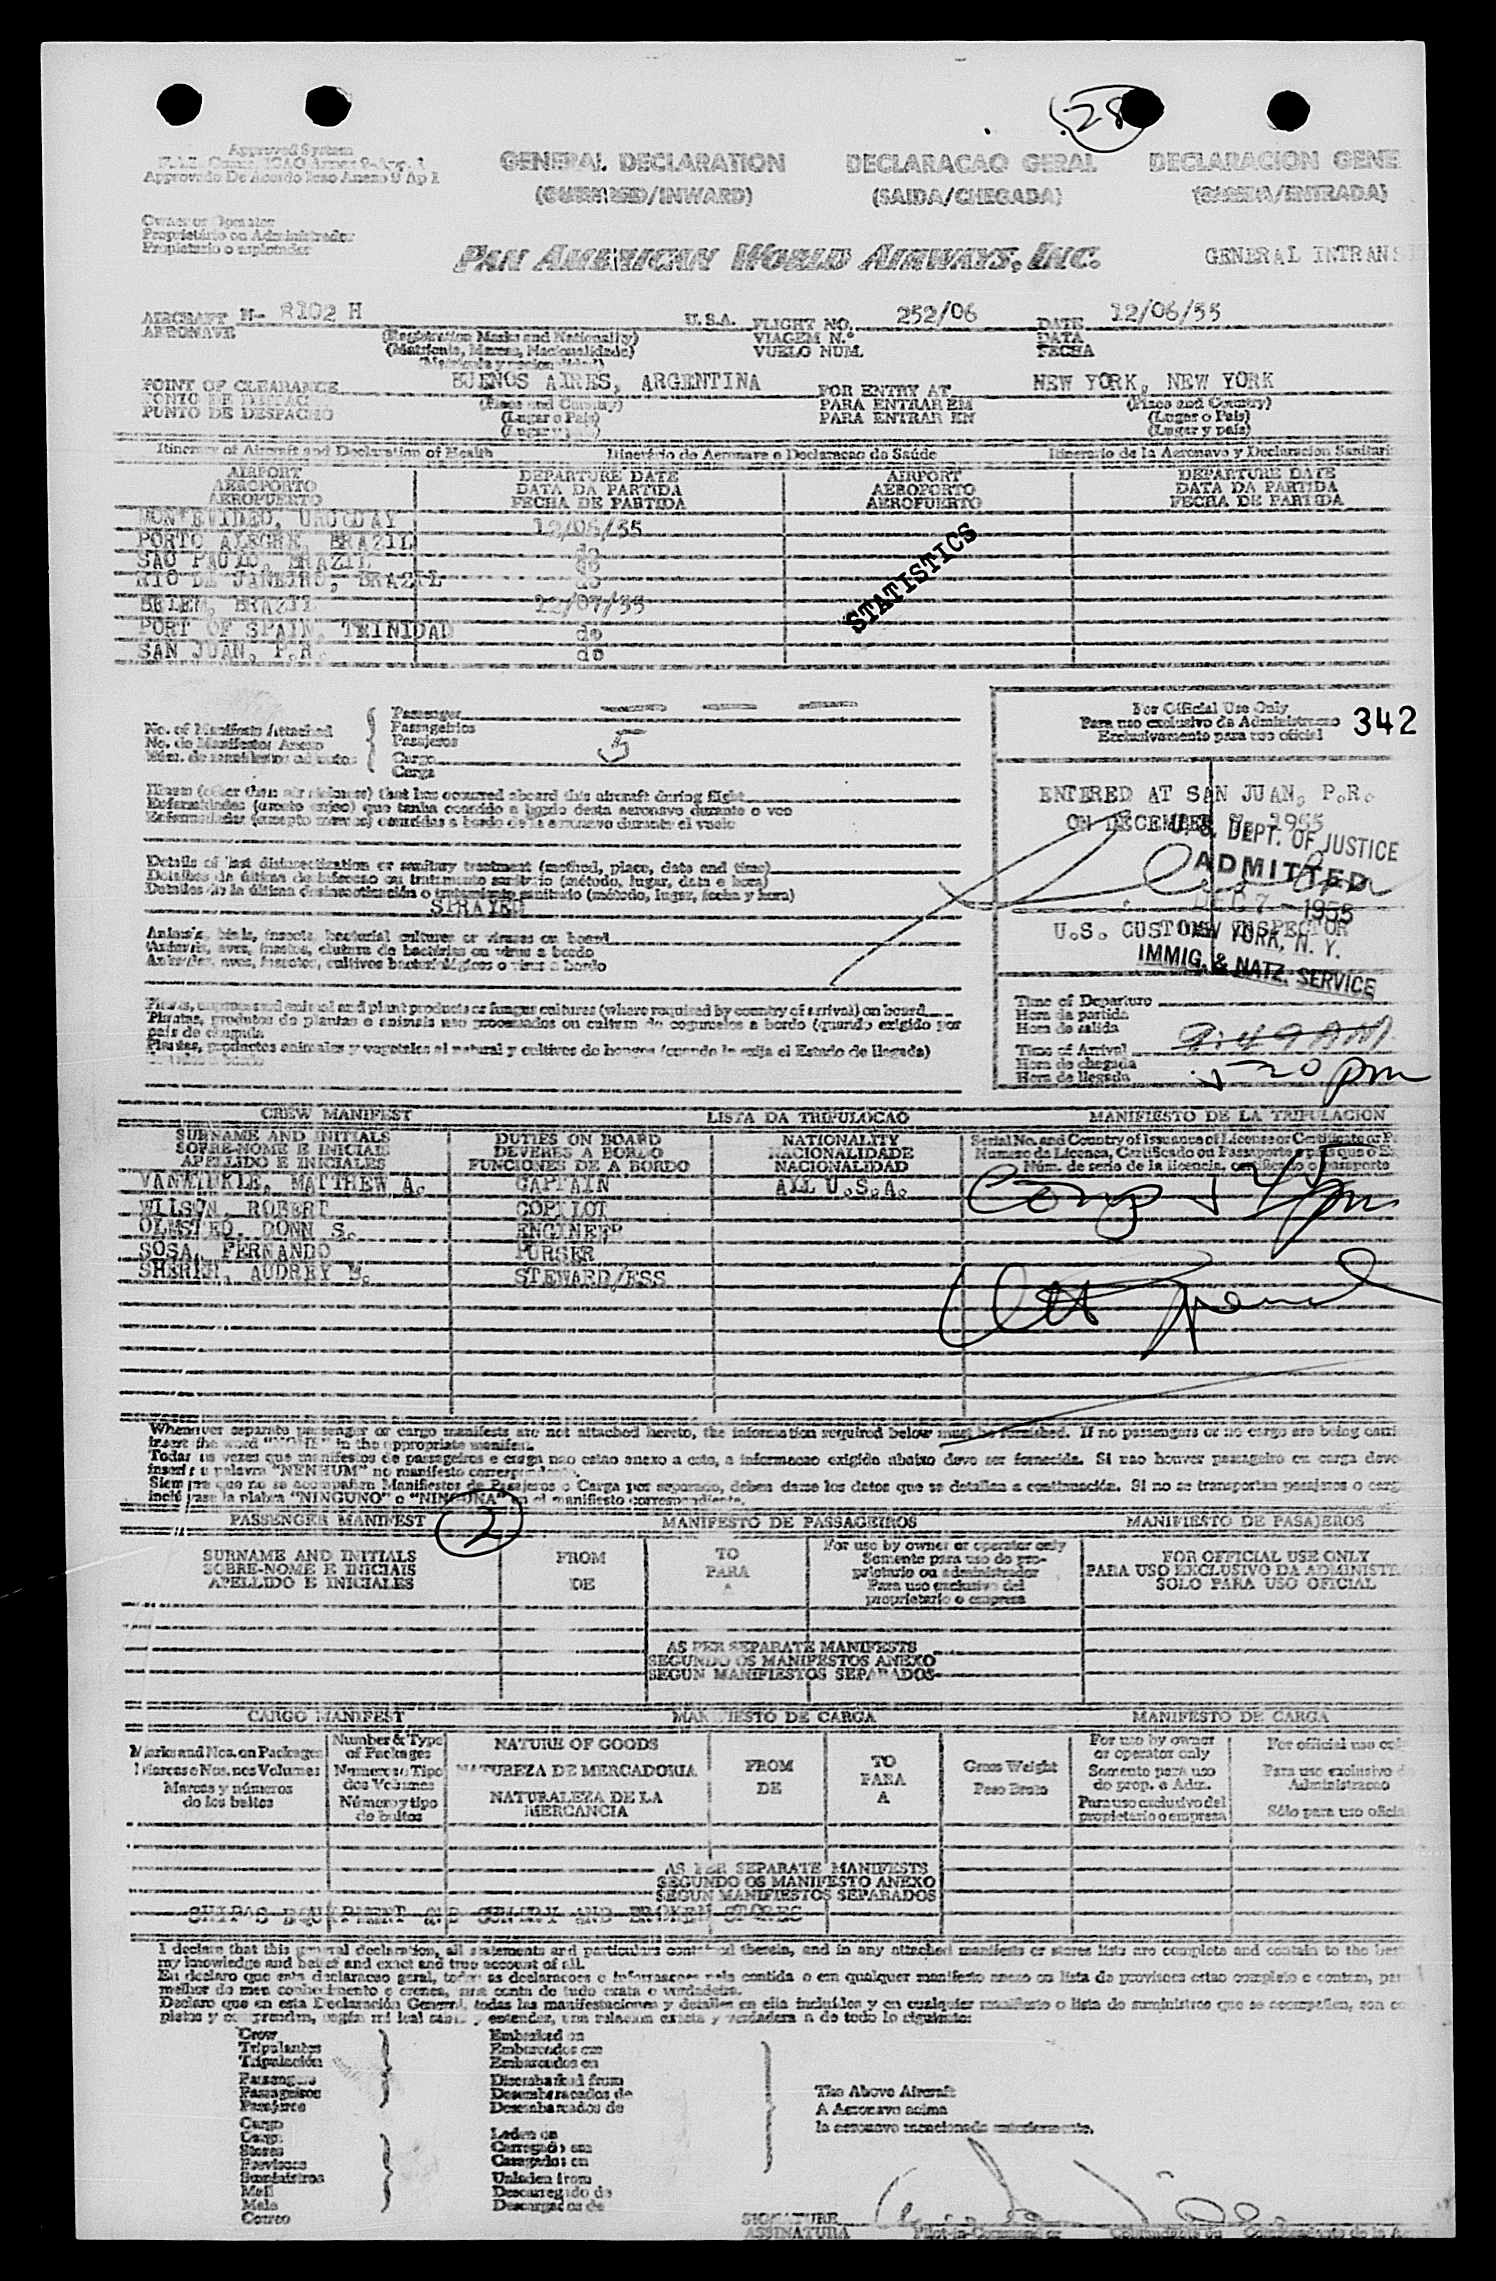 28
Approved System
Approvado De Acordo Icao Anexo 9 Ap 1
GENERAL DECLARATION DECLARACAO GERAL DECLARACION GENE
(OUTWARD/INWARD) (SAIDA/CHEGADA) (SALIDA/ENTRADA)
Owner or Operator
Proprietário ou Administrador
Propietario o explotador
PAN AMERICAN WORLD AIRWAYS, INC. GENERAL INTRANS
AIRCRAFT N- 8102 H U.S.A. FLIGHT NO. 252/06 DATE 12/06/55
AERONAVE (Registration Marks and Nationality) VIAGEM N.º DATA
(Matricula, Marcas, Nacionalidade) VUELO NUM. FECHA
(Matricula y nacionalidad)
POINT OF CLEARANCE BUENOS AIRES, ARGENTINA FOR ENTRY AT NEW YORK, NEW YORK
(Place and Country) PARA ENTRAR EM (Place and Country)
PUNTO DE DESPACHO (Lugar o Pais) PARA ENTRAR EN (Lugar o Pais)
(Lugar y pais) (Lugar y pais)
Itinerary of Aircraft and Declaration of Health Itinerário do Aeronave e Declaracao da Saúde Itinerario de la Aeronave y Declaracion Sanitari
AIRPORT DEPARTURE DATE AIRPORT DEPARTURE DATE
AEROPORTO DATA DA PARTIDA AEROPORTO DATA DA PARTIDA
AEROPUERTO FECHA DE PARTIDA AEROPUERTO FECHA DE PARTIDA
MONTEVIDEO, URUGUAY 12/06/55
PORTO ALEGRE, BRAZIL do
SAO PAULO, BRAZIL do
RIO DE JANEIRO, BRAZIL do
BELEM, BRAZIL 12/07/55
PORT OF SPAIN, TRINIDAD do
SAN JUAN, P.R. do
STATISTICS
No. of Manifests Attached
No. de Manifestos Anexo
Passenger
Passageiros
Pasajeros
Cargo 5
Carga
For Official Use Only
Para uso exclusivo da Administracao 342
Exclusivamente para uso oficial
Illness (other than air sickness) that has occurred aboard this aircraft during flight
Enfermidades (exceto enjoo) que tenha ocorrido a bordo desta aeronave durante o voo
Enfermedades (excepto mareos) ocurridas a bordo de la aeronave durante el vuelo
ENTERED AT SAN JUAN, P.R.
ON DECEMBER 7, 1955
U.S. DEPT. OF JUSTICE
ADMITTED
DEC 7 - 1955
NEW YORK, N. Y.
IMMIG. & NATZ. SERVICE
U.S. CUSTOMS INSPECTOR
Details of last disinsectization or sanitary treatment (method, place, date and time)
Detalhes da última desinfeccao ou tratamento sanitario (método, lugar, data e hora)
Detalles de la última desinsectización o tratamiento sanitario (método, lugar, fecha y hora)
SPRAYED
Animals, birds, insects, bacterial cultures or viruses on board
Animais, aves, insetos, cultura de bactérias ou virus a bordo
Animales, aves, insectos, cultivos bacteriológicos o virus a bordo
Plants, unprocessed animal and plant products or fungus cultures (where required by country of arrival) on board
Plantas, produtos de plantas e animais nao processados ou cultura de cogumelos a bordo (quando exigido por
pais de chegada
Plantas, productos animales y vegetales al natural y cultivos de hongos (cuando lo exija el Estado de llegada)
Time of Departure
Hora da partida
Hora de salida
Time of Arrival 9:49 AM
Hora de chegada 5 20 pm
Hora de llegada
CREW MANIFEST LISTA DA TRIPULOCAO MANIFIESTO DE LA TRIPULACION
SURNAME AND INITIALS DUTIES ON BOARD NATIONALITY Serial No. and Country of Issuance of License or Certificate or P
SOBRE-NOME E INICIAIS DEVERES A BORDO NACIONALIDADE Numero de Licenca, Certificado ou Passaporte
APELLIDO E INICIALES FUNCIONES DE A BORDO NACIONALIDAD Núm. de serie de la licencia, certificado o pasaporte
VANWINKLE, MATTHEW A. CAPTAIN ALL U.S.A.
WILSON, ROBERT COPILOT
OLMSTED, DONN S. ENGINEER
SOSA, FERNANDO PURSER
AUDREY STEWARD/ESS
Whenever separate passenger or cargo manifests are not attached hereto, the information required below must be furnished. If no passengers or no cargo are being carri
insert the word "NONE" in the appropriate manifest.
Todas as vezes que manifestos de passageiros e carga nao estao anexo a este, a informacao exigida abaixo deve ser fornecida. Si nao houver passageiro ou carga deve
inserir a palavra "NENHUM" no manifesto correspondente.
Siempre que no se acompañan Manifiestos de Pasajeros o Carga por separado, deben darse los datos que se detallan a continuación. Si no se transportan pasajeros o carg
"NINGUNO" o "NINGUNA" en el manifiesto correspondiente.
PASSENGER MANIFEST 2 MANIFESTO DE PASSAGEIROS MANIFIESTO DE PASAJEROS
SURNAME AND INITIALS FROM TO For use by owner or operator only FOR OFFICIAL USE ONLY
SOBRE-NOME E INICIAIS PARA Somente para uso do pro- PARA USO EXCLUSIVO DA ADMINISTRA
APELLIDO E INICIALES DE A prietario ou administrador SOLO PARA USO OFICIAL
Para uso exclusivo del
propietario o empresa
AS PER SEPARATE MANIFESTS
SEGUNDO OS MANIFESTOS ANEXO
SEGUN MANIFIESTOS SEPARADOS
CARGO MANIFEST MANIFIESTO DE CARGA MANIFIESTO DE CARGA
Marks and Nos. on Packages Number & Type of Packages NATURE OF GOODS FROM TO Gross Weight For use by owner or operator only For official use
Marcas e Nos. nos Volumes Numeros e Tipo dos Volumes NATUREZA DE MERCADORIA DE PARA Peso Bruto Somente para uso do prop. e Adm. Para uso exclusivo Administracao
Marcas y números de los bultos Número y tipo de bultos NATURALEZA DE LA MERCANCIA A Para uso exclusivo del propietario o empresa Sólo para uso oficial
AS PER SEPARATE MANIFESTS
SEGUNDO OS MANIFESTO ANEXO
SEGUN MANIFIESTOS SEPARADOS
SHIPAS EQUIPMENT AND AND BROKEN STORES
I declare that this general declaration, all statements and particulars contained therein, and in any attached manifests or stores lists are complete and contain to the best
my knowledge and belief and exact and true account of all.
Eu declaro que esta declaracao geral, todas as declaracoes e informacoes nela contida e em qualquer manifesto anexo ou lista de provisoes estao completo e contem, pa
melhor do meu conhecimento e crenca, uma conta de tudo exata e verdadeira.
Declaro que en esta Declaración General, todas las manifestaciones y detalles en ella incluidos y en cualquier manifiesto o lista de suministros que se acompañen, son co
pletos y comprenden, según mi leal saber y entender, una relación exacta y verdadera a de todo lo siguiente:
Crew Embarked on
Tripulantes Embarcados em
Tripulación Embarcados en
Passengers Disembarked from
Passageiros Desembaracados de
Pasajeros Desembarcados de
Cargo
Carga Laden on
Stores Carregado em
Provisoes Cargados en
Suministros Unladen from
Mail Descarregado de
Mala Descargados de
Correo
The Above Aircraft
A Aeronave acima
la aeronave mencionada anteriormente.
SIGNATURE
ASSINATURA Pilot-in-Command or Comandante ou Comandante de la